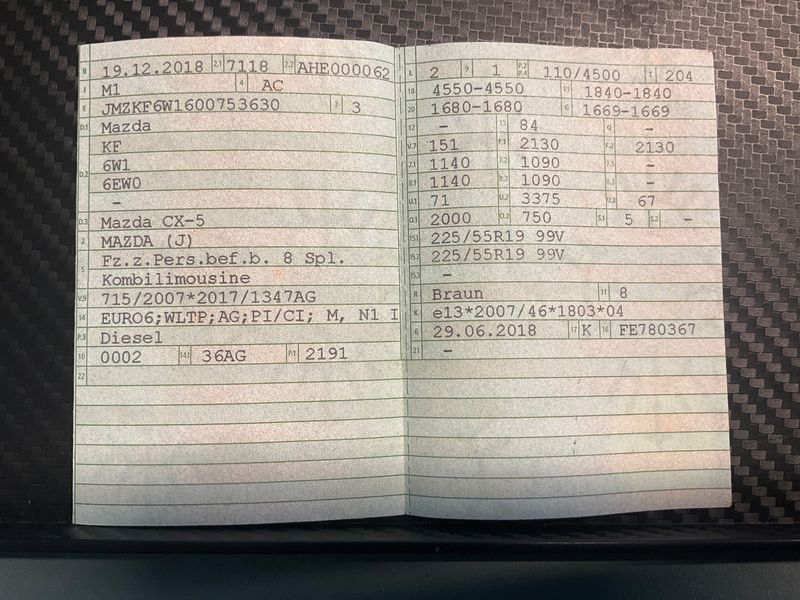 B 19.12.2018 2.1 7118 2.2 AHE000062
J M1 4 AC
E JMZKF6W1600753630 3 3
D.1 Mazda
KF
D.2 6W1
6EW0
–
D.3 Mazda CX-5
2 MAZDA (J)
5 Fz.z.Pers.bef.b. 8 Spl.
Kombilimousine
V.9 715/2007*2017/1347AG
14 EURO6;WLTP;AG;PI/CI; M, N1 I
P.3 Diesel
10 0002 14.1 36AG P.1 2191
22
L 2 9 1 P.2 P.4 110/4500 T 204
18 4550-4550 19 1840-1840
20 1680-1680 G 1669-1669
12 – 13 84 Q –
V.7 151 F.1 2130 F.2 2130
7.1 1140 7.2 1090 7.3 –
8.1 1140 8.2 1090 8.3 –
U.1 71 U.2 3375 U.3 67
O.1 2000 O.2 750 S.1 5 S.2 –
15.1 225/55R19 99V
15.2 225/55R19 99V
15.3 –
R Braun 11 8
K e13*2007/46*1803*04
6 29.06.2018 17 K 16 FE780367
21 –